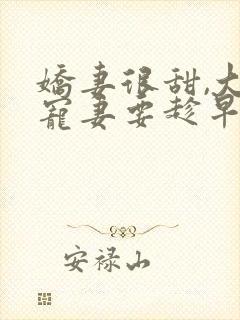 嬌妻很甜,大
寵妻要趁早
安禄山